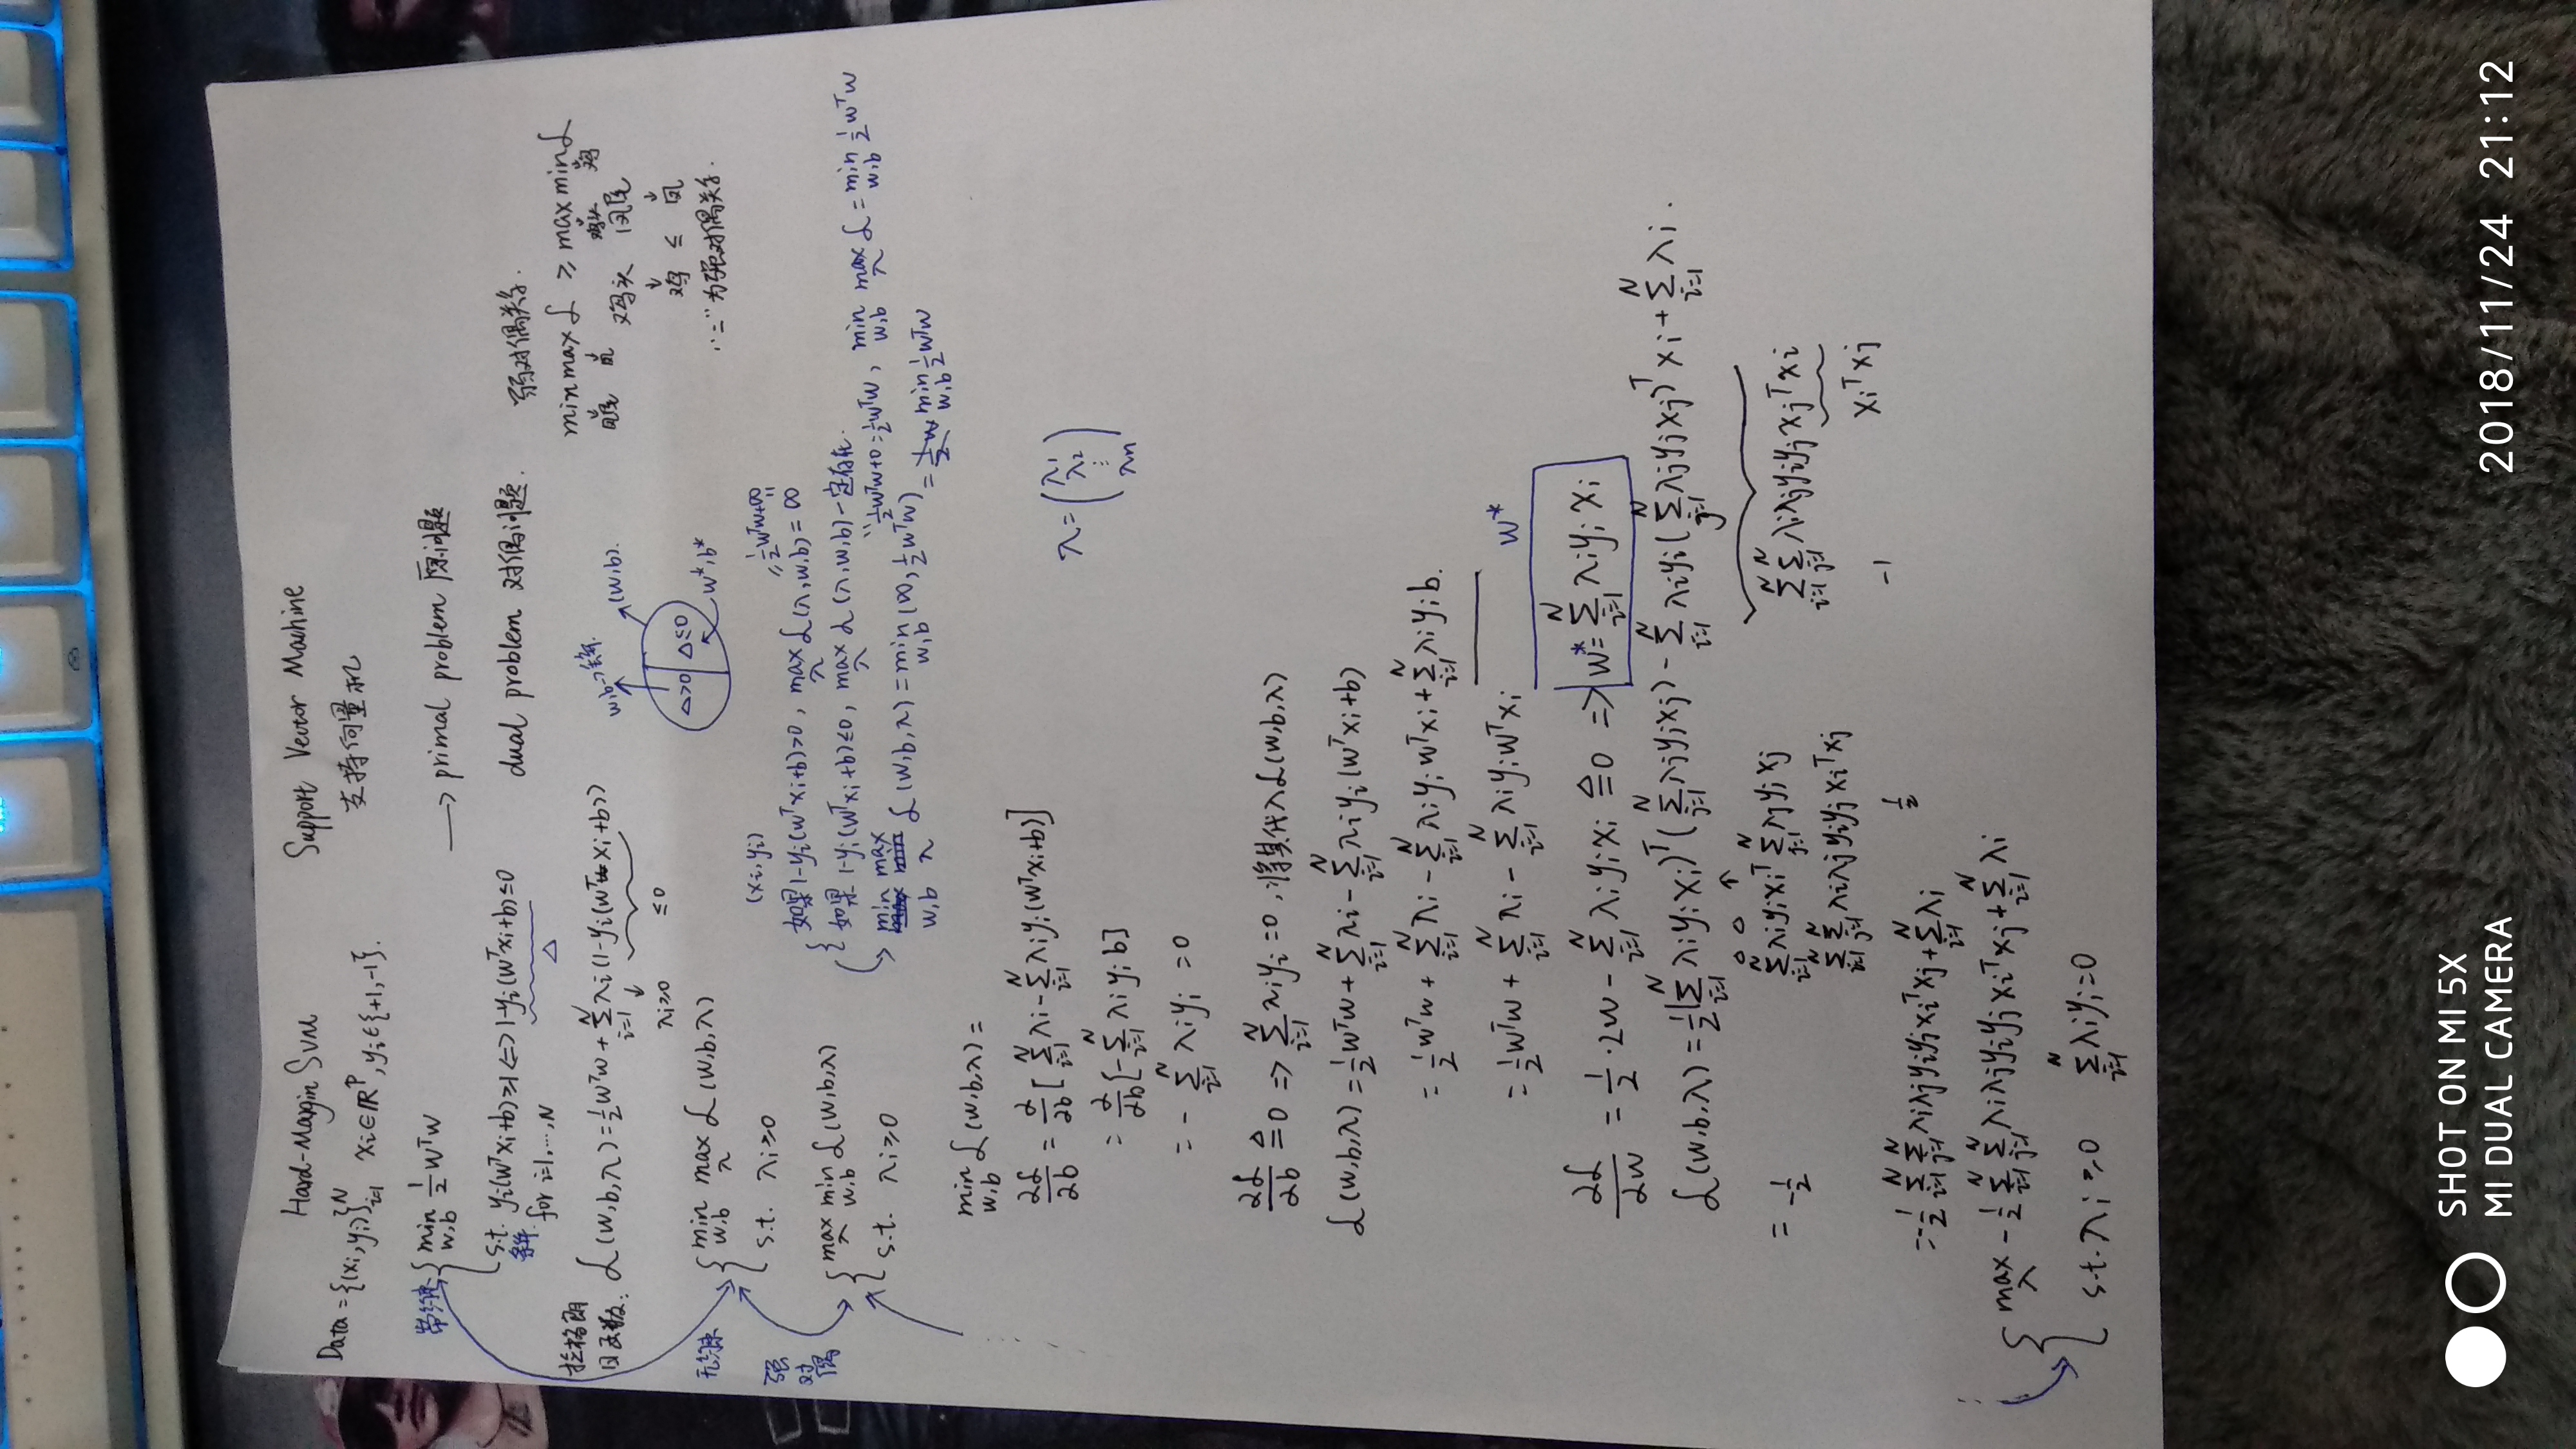 Hard-Margin SVM
Support Vector Machine
Data = {(xi, yi)}_{i=1}^N xi∈ℝ^p, yi∈{+1,-1}.
支持向量机
带约束 { min_{w,b} 1/2 w^T w
→ primal problem 原问题
s.t. yi(w^T xi+b)≥1 ⟺ 1-yi(w^T xi+b)≤0
条件
for i=1,...,N
△
dual problem 对偶问题.
弱对偶关系.
min max ℒ ≥ max min ℒ
凤尾 凤 鸡头 鸡
鸡头 凤尾
↓ ↓
鸡 ≤ 凤
"=" 为强对偶关系.
拉格朗日函数: ℒ(w,b,λ) = 1/2 w^T w + Σ_{i=1}^N λi(1-yi(w^T xi+b))
λi≥0 ≤0
w,b→丢弃.
(w,b).
△>0 △≤0
w*,b*
无约束 { min_{w,b} max_λ ℒ(w,b,λ)
s.t. λi≥0
强对偶
{ max_λ min_{w,b} ℒ(w,b,λ)
s.t. λi≥0
(xi, yi)
= 1/2 w^T w+∞
如果 1-yi(w^T xi+b)>0, max_λ ℒ(λ,w,b) = ∞
如果 1-yi(w^T xi+b)≤0, max_λ ℒ(λ,w,b) 一定存在.
1/2 w^T w+0 = 1/2 w^T w, min_{w,b} max_λ ℒ = min_{w,b} 1/2 w^T w
min_{w,b} max_λ ℒ(w,b,λ) = min_{w,b}(∞, 1/2 w^T w) = min_{w,b} 1/2 w^T w
min_{w,b} ℒ(w,b,λ) =
∂ℒ/∂b = ∂/∂b [Σ_{i=1}^N λi - Σ_{i=1}^N λi yi(w^T xi+b)]
λ = (λ1 λ2 ⋮ λn)
= ∂/∂b [-Σ_{i=1}^N λi yi b]
= - Σ_{i=1}^N λi yi = 0
∂ℒ/∂b ≜ 0 => Σ_{i=1}^N λi yi = 0, 将其代入ℒ(w,b,λ)
ℒ(w,b,λ) = 1/2 w^T w + Σ_{i=1}^N λi - Σ_{i=1}^N λi yi (w^T xi+b)
= 1/2 w^T w + Σ_{i=1}^N λi - Σ_{i=1}^N λi yi w^T xi + Σ_{i=1}^N λi yi b.
= 1/2 w^T w + Σ_{i=1}^N λi - Σ_{i=1}^N λi yi w^T xi
w*
∂ℒ/∂w = 1/2 · 2w - Σ_{i=1}^N λi yi xi ≜ 0 => w* = Σ_{i=1}^N λi yi xi
ℒ(w,b,λ) = 1/2 (Σ_{i=1}^N λi yi xi)^T (Σ_{j=1}^N λj yj xj) - Σ_{i=1}^N λi yi (Σ_{j=1}^N λj yj xj)^T xi + Σ_{i=1}^N λi.
= -1/2
Σ_{i=1}^N λi yi xi^T Σ_{j=1}^N λj yj xj
Σ_{i=1}^N Σ_{j=1}^N λi λj yi yj xj^T xi
Σ_{i=1}^N Σ_{j=1}^N λi λj yi yj xi^T xj
xi^T xj
1/2
-1
= -1/2 Σ_{i=1}^N Σ_{j=1}^N λi λj yi yj xi^T xj + Σ_{i=1}^N λi
{ max_λ -1/2 Σ_{i=1}^N Σ_{j=1}^N λi λj yi yj xi^T xj + Σ_{i=1}^N λi
s.t. λi ≥0 Σ_{i=1}^N λi yi = 0
SHOT ON MI 5X
MI DUAL CAMERA
2018/11/24 21:12